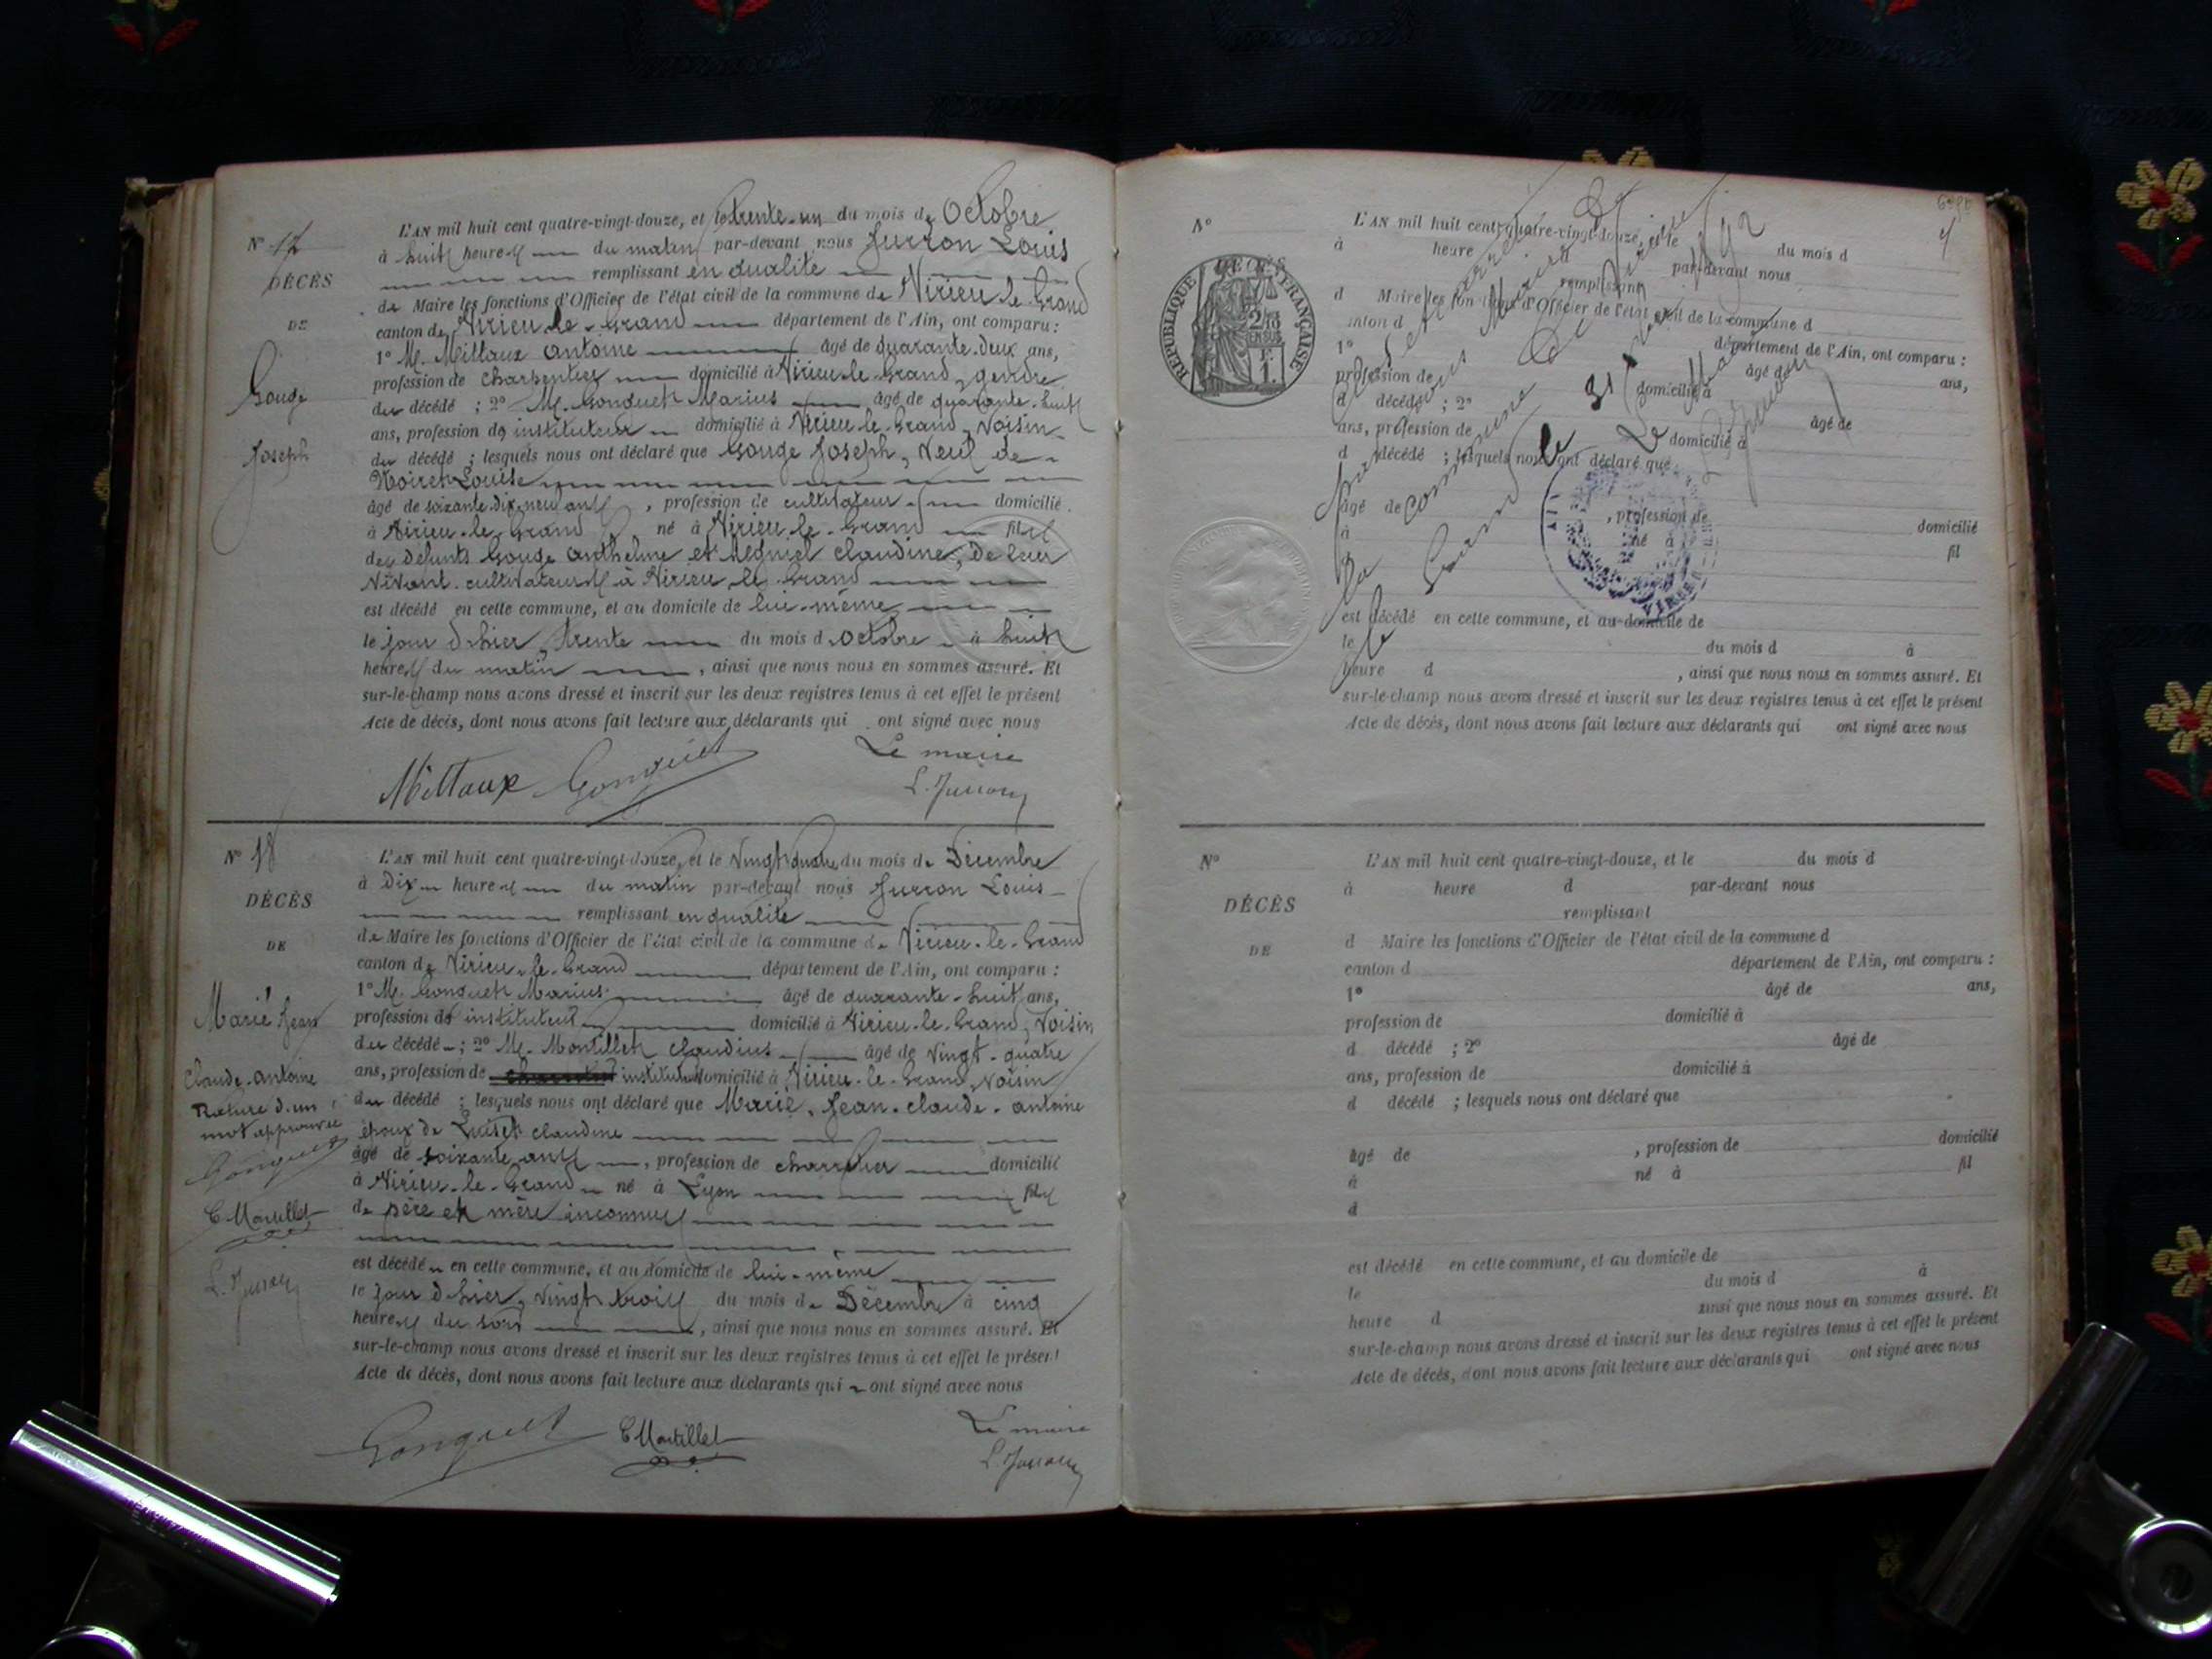 N° 17
DÉCÈS
DE
Gouge
Joseph
L'AN mil huit cent quatre-vingt-douze, et le trente-un du mois de Octobre
à huit heures du matin par-devant nous Jurron Louis
remplissant en qualité
de Maire les fonctions d'Officier de l'état civil de la commune de Virieu-le-Grand
canton de Virieu-le-Grand département de l'Ain, ont comparu :
1° M. Millaux Antoine âgé de quarante-deux ans,
profession de charpentier domicilié à Virieu-le-Grand, gendre
du décédé ; 2° M. Gonguet Marius âgé de quarante-huit
ans, profession de instituteur domicilié à Virieu-le-Grand, voisin
du décédé ; lesquels nous ont déclaré que Gouge Joseph, veuf de
Louise
âgé de soixante-dix-neuf ans, profession de cultivateur domicilié
à Virieu-le-Grand né à Virieu-le-Grand fils
des défunts Gouge Anthelme et claudine, de leur
vivant cultivateurs à Virieu-le-Grand
est décédé en cette commune, et au domicile de lui-même
le jour d'hier, trente du mois d'octobre à huit
heures du matin, ainsi que nous nous en sommes assuré. Et
sur-le-champ nous avons dressé et inscrit sur les deux registres tenus à cet effet le présent
Acte de décès, dont nous avons fait lecture aux déclarants qui ont signé avec nous
Millaux Gonguet
Le maire
L. Jurron
N° 18
DÉCÈS
DE
Marie Jean
Claude-Antoine
Rature d'un
mot approuvée
Gonguet
C Montillet
L. Jurron
L'AN mil huit cent quatre-vingt-douze, et le vingt-quatre du mois de Décembre
à Dix heures du matin par-devant nous Jurron Louis
remplissant en qualité
de Maire les fonctions d'Officier de l'état civil de la commune de Virieu-le-Grand
canton de Virieu-le-Grand département de l'Ain, ont comparu :
1° M. Gonguet Marius âgé de quarante-huit ans,
profession de instituteur domicilié à Virieu-le-Grand, voisin
du décédé ; 2° M. Montillet claudius âgé de vingt-quatre
ans, profession de instituteur domicilié à Virieu-le-Grand, voisin
du décédé ; lesquels nous ont déclaré que Marie, Jean-claude-antoine
époux de claudine
âgé de soixante ans, profession de charretier domicilié
à Virieu-le-Grand né à Lyon fils
de père et mère inconnus
est décédé en cette commune, et au domicile de lui-même
le jour d'hier, vingt trois du mois de Décembre à cinq
heures du soir, ainsi que nous nous en sommes assuré. Et
sur-le-champ nous avons dressé et inscrit sur les deux registres tenus à cet effet le présent
Acte de décès, dont nous avons fait lecture aux déclarants qui ont signé avec nous
Gonguet C Montillet
Le maire
L. Jurron
N°
DÉCÈS
RÉPUBLIQUE FRANÇAISE
L'AN mil huit cent quatre-vingt-douze, et le du mois d
à heure d par-devant nous
remplissant
d Maire les fonctions d'Officier de l'état civil de la commune d
canton d département de l'Ain, ont comparu :
1° âgé de ans,
profession de domicilié à
d décédé ; 2° âgé de
ans, profession de domicilié à
d décédé ; lesquels nous ont déclaré que
âgé de , profession de domicilié
à né à fil
d
est décédé en cette commune, et au domicile de
le du mois d à
heure d , ainsi que nous nous en sommes assuré. Et
sur-le-champ nous avons dressé et inscrit sur les deux registres tenus à cet effet le présent
Acte de décès, dont nous avons fait lecture aux déclarants qui ont signé avec nous
Clos et arrêté
par nous Maire de
la commune de Virieu
le Grand le 31 1892
Le Maire
N°
DÉCÈS
DE
L'AN mil huit cent quatre-vingt-douze, et le du mois d
à heure d par-devant nous
remplissant
d Maire les fonctions d'Officier de l'état civil de la commune d
canton d département de l'Ain, ont comparu :
1° âgé de ans,
profession de domicilié à
d décédé ; 2° âgé de
ans, profession de domicilié à
d décédé ; lesquels nous ont déclaré que
âgé de , profession de domicilié
à né à fil
d
est décédé en cette commune, et au domicile de
le du mois d à
heure d ainsi que nous nous en sommes assuré. Et
sur-le-champ nous avons dressé et inscrit sur les deux registres tenus à cet effet le présent
Acte de décès, dont nous avons fait lecture aux déclarants qui ont signé avec nous